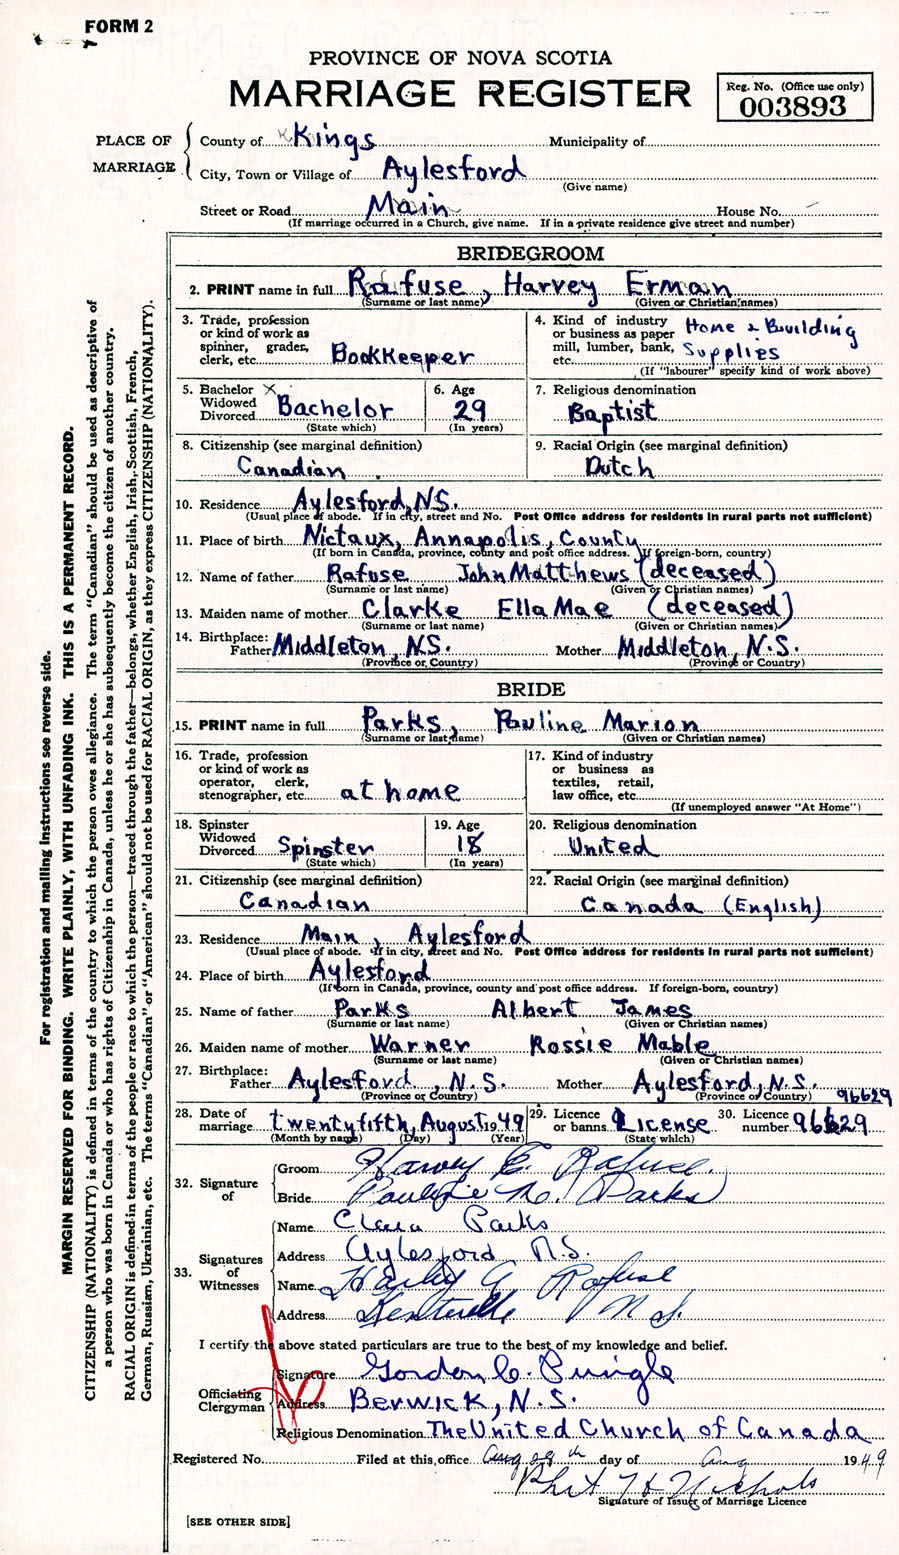 FORM 2
PROVINCE OF NOVA SCOTIA
MARRIAGE REGISTER
Reg. No. (Office use only)
003893
PLACE OF MARRIAGE
County of Kings Municipality of
City, Town or Village of Aylesford
(Give name)
Street or Road Main House No.
(If marriage occurred in a Church, give name. If in a private residence give street and number)
BRIDEGROOM
2. PRINT name in full Rafuse, Harvey Erman
(Surname or last name) (Given or Christian names)
3. Trade, profession
or kind of work as
spinner, grader,
clerk, etc. Bookkeeper
4. Kind of industry
or business as paper
mill, lumber, bank,
etc. Home & Building
Supplies
(If "labourer" specify kind of work above)
5. Bachelor X
Widowed
Divorced Bachelor
(State which)
6. Age
29
(In years)
7. Religious denomination
Baptist
8. Citizenship (see marginal definition)
Canadian
9. Racial Origin (see marginal definition)
Dutch
10. Residence Aylesford, N.S.
(Usual place of abode. If in city, street and No. Post Office address for residents in rural parts not sufficient)
11. Place of birth Nictaux, Annapolis, County
(If born in Canada, province, county and post office address. If foreign-born, country)
12. Name of father Rafuse John Matthews (deceased)
(Surname or last name) (Given or Christian names)
13. Maiden name of mother Clarke Ella Mae (deceased)
(Surname or last name) (Given or Christian names)
14. Birthplace:
Father Middleton, N.S. Mother Middleton, N.S.
(Province or Country) (Province or Country)
BRIDE
15. PRINT name in full Parks, Pauline Marion
(Surname or last name) (Given or Christian names)
16. Trade, profession
or kind of work as
operator, clerk,
stenographer, etc. at home
17. Kind of industry
or business as
textiles, retail,
law office, etc.
(If unemployed answer "At Home")
18. Spinster
Widowed
Divorced Spinster
(State which)
19. Age
18
(In years)
20. Religious denomination
United
21. Citizenship (see marginal definition)
Canadian
22. Racial Origin (see marginal definition)
Canada (English)
23. Residence Main, Aylesford
(Usual place of abode. If in city, street and No. Post Office address for residents in rural parts not sufficient)
24. Place of birth Aylesford
(If born in Canada, province, county and post office address. If foreign-born, country)
25. Name of father Parks Albert James
(Surname or last name) (Given or Christian names)
26. Maiden name of mother Warner Rossie Mable
(Surname or last name) (Given or Christian names)
27. Birthplace:
Father Aylesford, N.S. Mother Aylesford, N.S.
(Province or Country) (Province or Country) 96629
28. Date of
marriage twentyfifth, August 1949
(Month by name) (Day) (Year)
29. Licence
or banns License
(State which)
30. Licence
number 96629
32. Signature of
Groom Harvey E. Rafuse.
Bride Pauline M. Parks
33. Signatures of Witnesses
Name Clara Parks
Address Aylesford N.S.
Name Harley G Rafuse
Address Kentville N S.
I certify the above stated particulars are true to the best of my knowledge and belief.
Officiating Clergyman
Signature Gordon C. Pringle
Address Berwick, N.S.
Religious Denomination The United Church of Canada
Registered No. Filed at this office Aug 28th day of Aug 1949
H Nichols
Signature of Issuer of Marriage Licence
[SEE OTHER SIDE]
For registration and mailing instructions see reverse side.
MARGIN RESERVED FOR BINDING. WRITE PLAINLY, WITH UNFADING INK. THIS IS A PERMANENT RECORD.
CITIZENSHIP (NATIONALITY) is defined in terms of the country to which the person owes allegiance. The term "Canadian" should be used as descriptive of
a person who was born in Canada or who has rights of Citizenship in Canada, unless he or she has subsequently become the citizen of another country.
RACIAL ORIGIN is defined in terms of the people or race to which the person—traced through the father—belongs, whether English, Irish, Scottish, French,
German, Russian, Ukrainian, etc. The terms "Canadian" or "American" should not be used for RACIAL ORIGIN, as they express CITIZENSHIP (NATIONALITY).